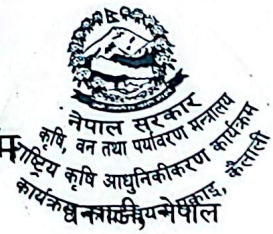 नेपाल सरकार
कृषि, वन तथा पर्यावरण मन्त्रालय
राष्ट्रिय कृषि आधुनिकीकरण कार्यक्रम
कार्यक्रम कैलाली
नेपाल